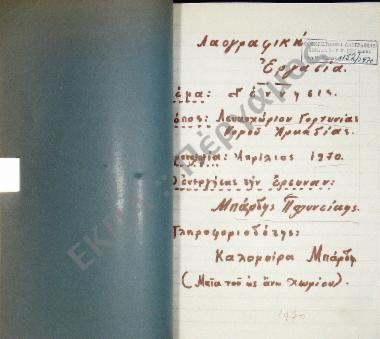 Λαογραφική
Ἐργασία.
Θέμα: Γέννησις.
Τόπος: Λευκοχώριον Γορτυνίας
Νομοῦ Ἀρκαδίας.
Χρονολογία: Ἀπρίλιος 1970.
Ὁ ἐνεργήσας τὴν ἔρευναν:
Μπάρδης Πολυνείκης.
Πληροφοριοδότης:
Καλομοίρα Μπάρδη
(Μαῖα τοῦ ὡς ἄνω χωρίου).
1970
ΕΚΠΑ :: Πέργαμος